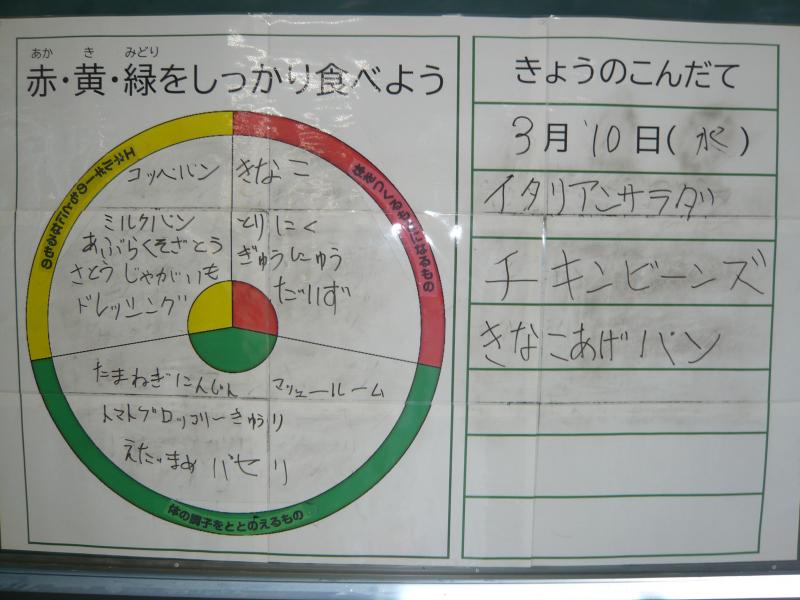 あか き みどり
赤・黄・緑をしっかり食べよう
エネルギーのもとになるもの
体をつくるもとになるもの
コッペパン
きなこ
ミルクパン
あぶらくそざとう
さとう じゃがいも
ドレッシング
とりにく
ぎゅうにゅう
だいず
たまねぎにんじん マッシュールーム
トマトブロッコリーきゅうり
えだまめ パセリ
体の調子をととのえるもの
きょうのこんだて
3月10日(水)
イタリアンサラダ
チキンビーンズ
きなこあげパン